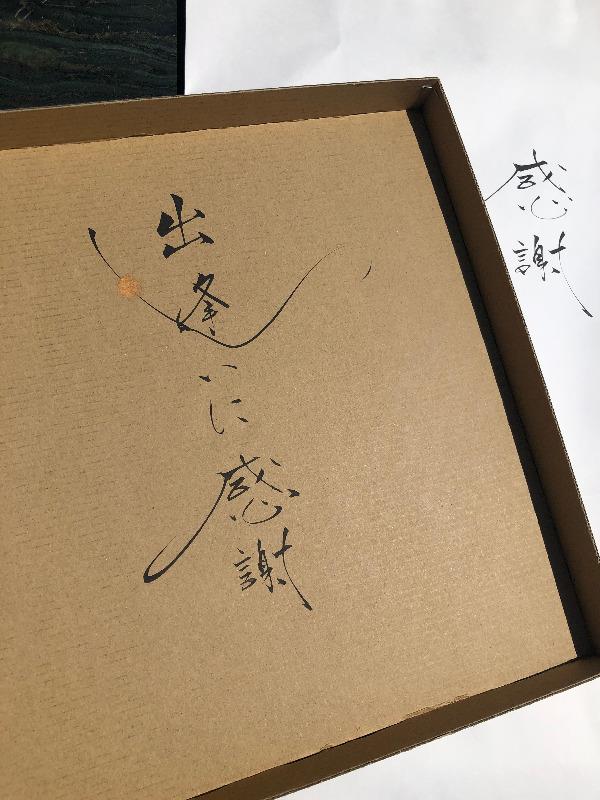 出逢いに感謝
感謝